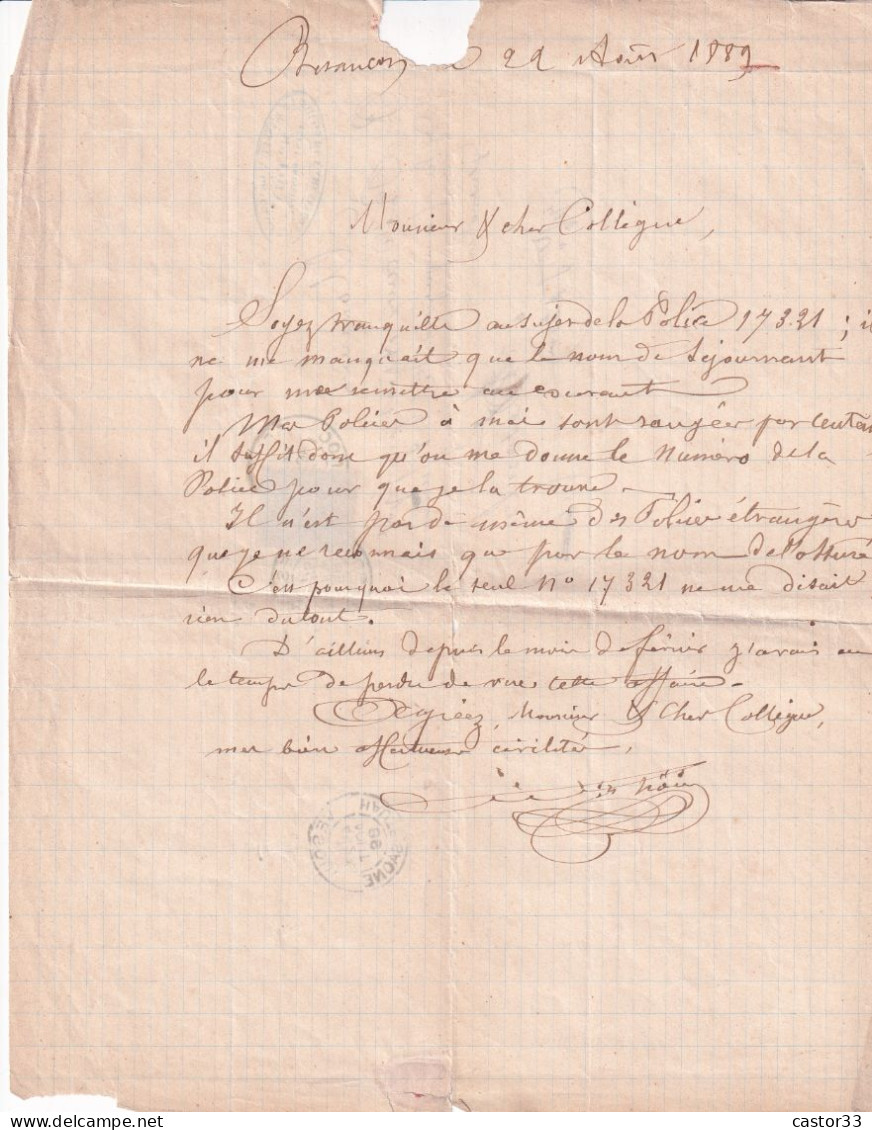 Besançon le 22 Août 1889
Monsieur & cher Collègue,
Soyez tranquille au sujet de la Police 17321 ; il
ne me manquait que le nom de Séjournant
pour me remettre au courant
Mes Polices à moi sont rangées par centaine
il suffit donc qu'on me donne le Numéro de la
Police pour que je la trouve.
Il n'est pas de même des Polices étrangères
que je ne reconnais que par le nom de l'assuré
C'est pourquoi le seul No 17321 ne me disait
rien du tout.
D'ailleurs depuis le mois de février j'avais eu
le temps de perdre de vue cette affaire.
Agréez, Monsieur & Cher Collègue,
mes bien affectueuses civilités,
HTE SAONE
VESOUL
castor33